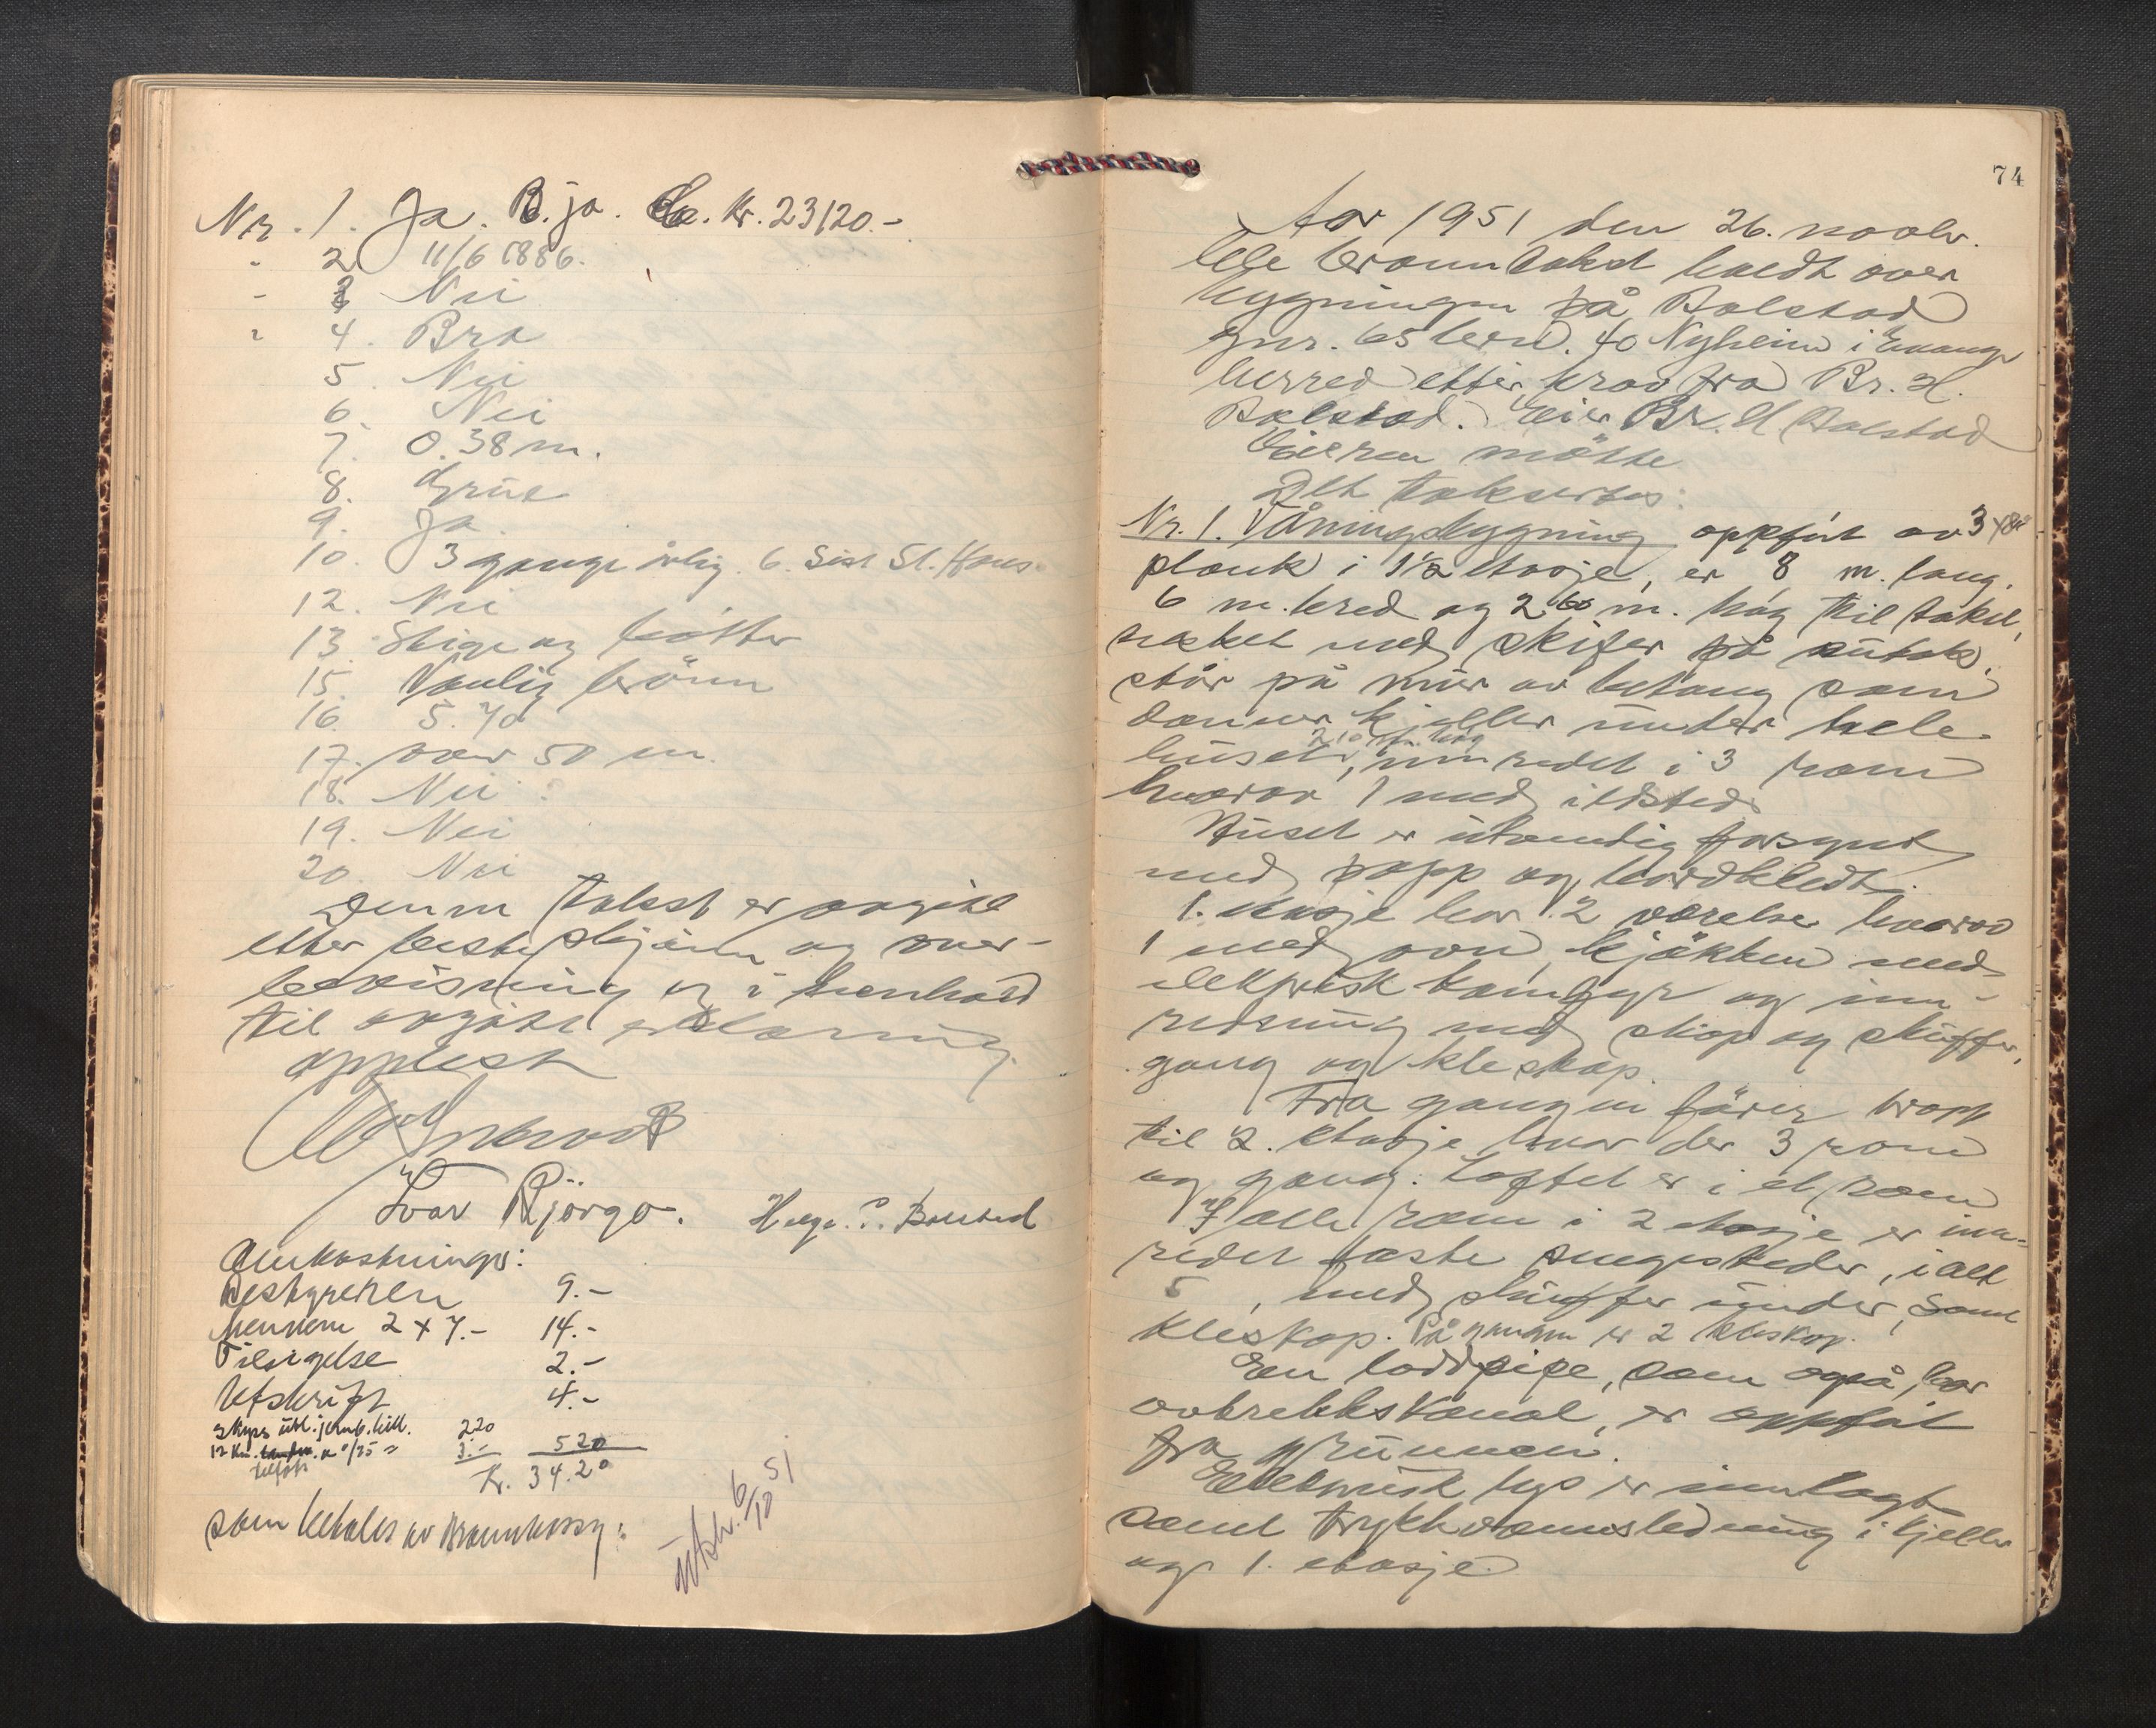 Nr. 1. Ja. B. ja. C. Kr. 23120.-
" 2 11/6 1886.
" 3 Nei
" 4. Bra
5. Nei
6. Nei
7. 0.38 m.
8. Grue
9. Ja
10. 3 gange årlig. 6. Sist St. Hans.
12. Nei
13. Stige og bøtter
15. Vanlig brönn
16. 5.70
17. over 50 m.
18. Nei
19. Nei
20. Nei
Denne takst er avgitt
etter beste skjönn og over-
bevisning og i henhold
til avgitt erklæring.
opplest
Ivar Björgo. Helge Bolstad
Omkostninger:
Bestyreren 9.-
Mennene 2 x 7.- 14.-
Tilsigelse 2.-
Utskrift 4.-
Skyss utl. jernb. bill. 2.20
12 km. a 0/25 = 3.- 5 20
Kr. 34.20
som betales av Brannkassen.
Utskr. 6/12 51
74
Aar 1951 den 26. novbr.
ble branntakst holdt over
bygningen på Bolstad
gnr. 65 brn. 40 Nyheim i Evanger
herred etter krav fra Br. H.
Bolstad. Eier Br. H. Bolstad
Eieren møtte
Det takseres:
Nr. 1. Våningsbygning oppført av 3 x 8"
plank i 1 1/2 etasje, er 8 m. lang,
6 m. bred og 2.60 m. høg til taket,
tekket med skifer på sutak,
står på mur av betong som
danner kjeller under hele
huset, 2.10 m. høg
innredet i 3 rom
hvorav 1 med ildsted.
Huset er utvendig forsynt
med papp og bordkledt.
1. etasje har 2 værelser hvorav
1 med ovn, kjøkken med
elektrisk komfyr og inn-
redning med skap og skuffer,
gang og kleskap.
Fra gangen fører trapp
til 2. etasje hvor der 3 rom
og gang. Loftet er i et rom
I alle rom i 2 etasje er inn-
redet faste sengesteder, i alt
5, med skuffer under, samt
kleskap. På gangen er 2 kleskap.
En loddpipe, som også har
avtrekkskanal, er oppført
fra grunnen.
Elektrisk lys er innlagt
samt trykkvannsledning i kjeller
og 1. etasje.